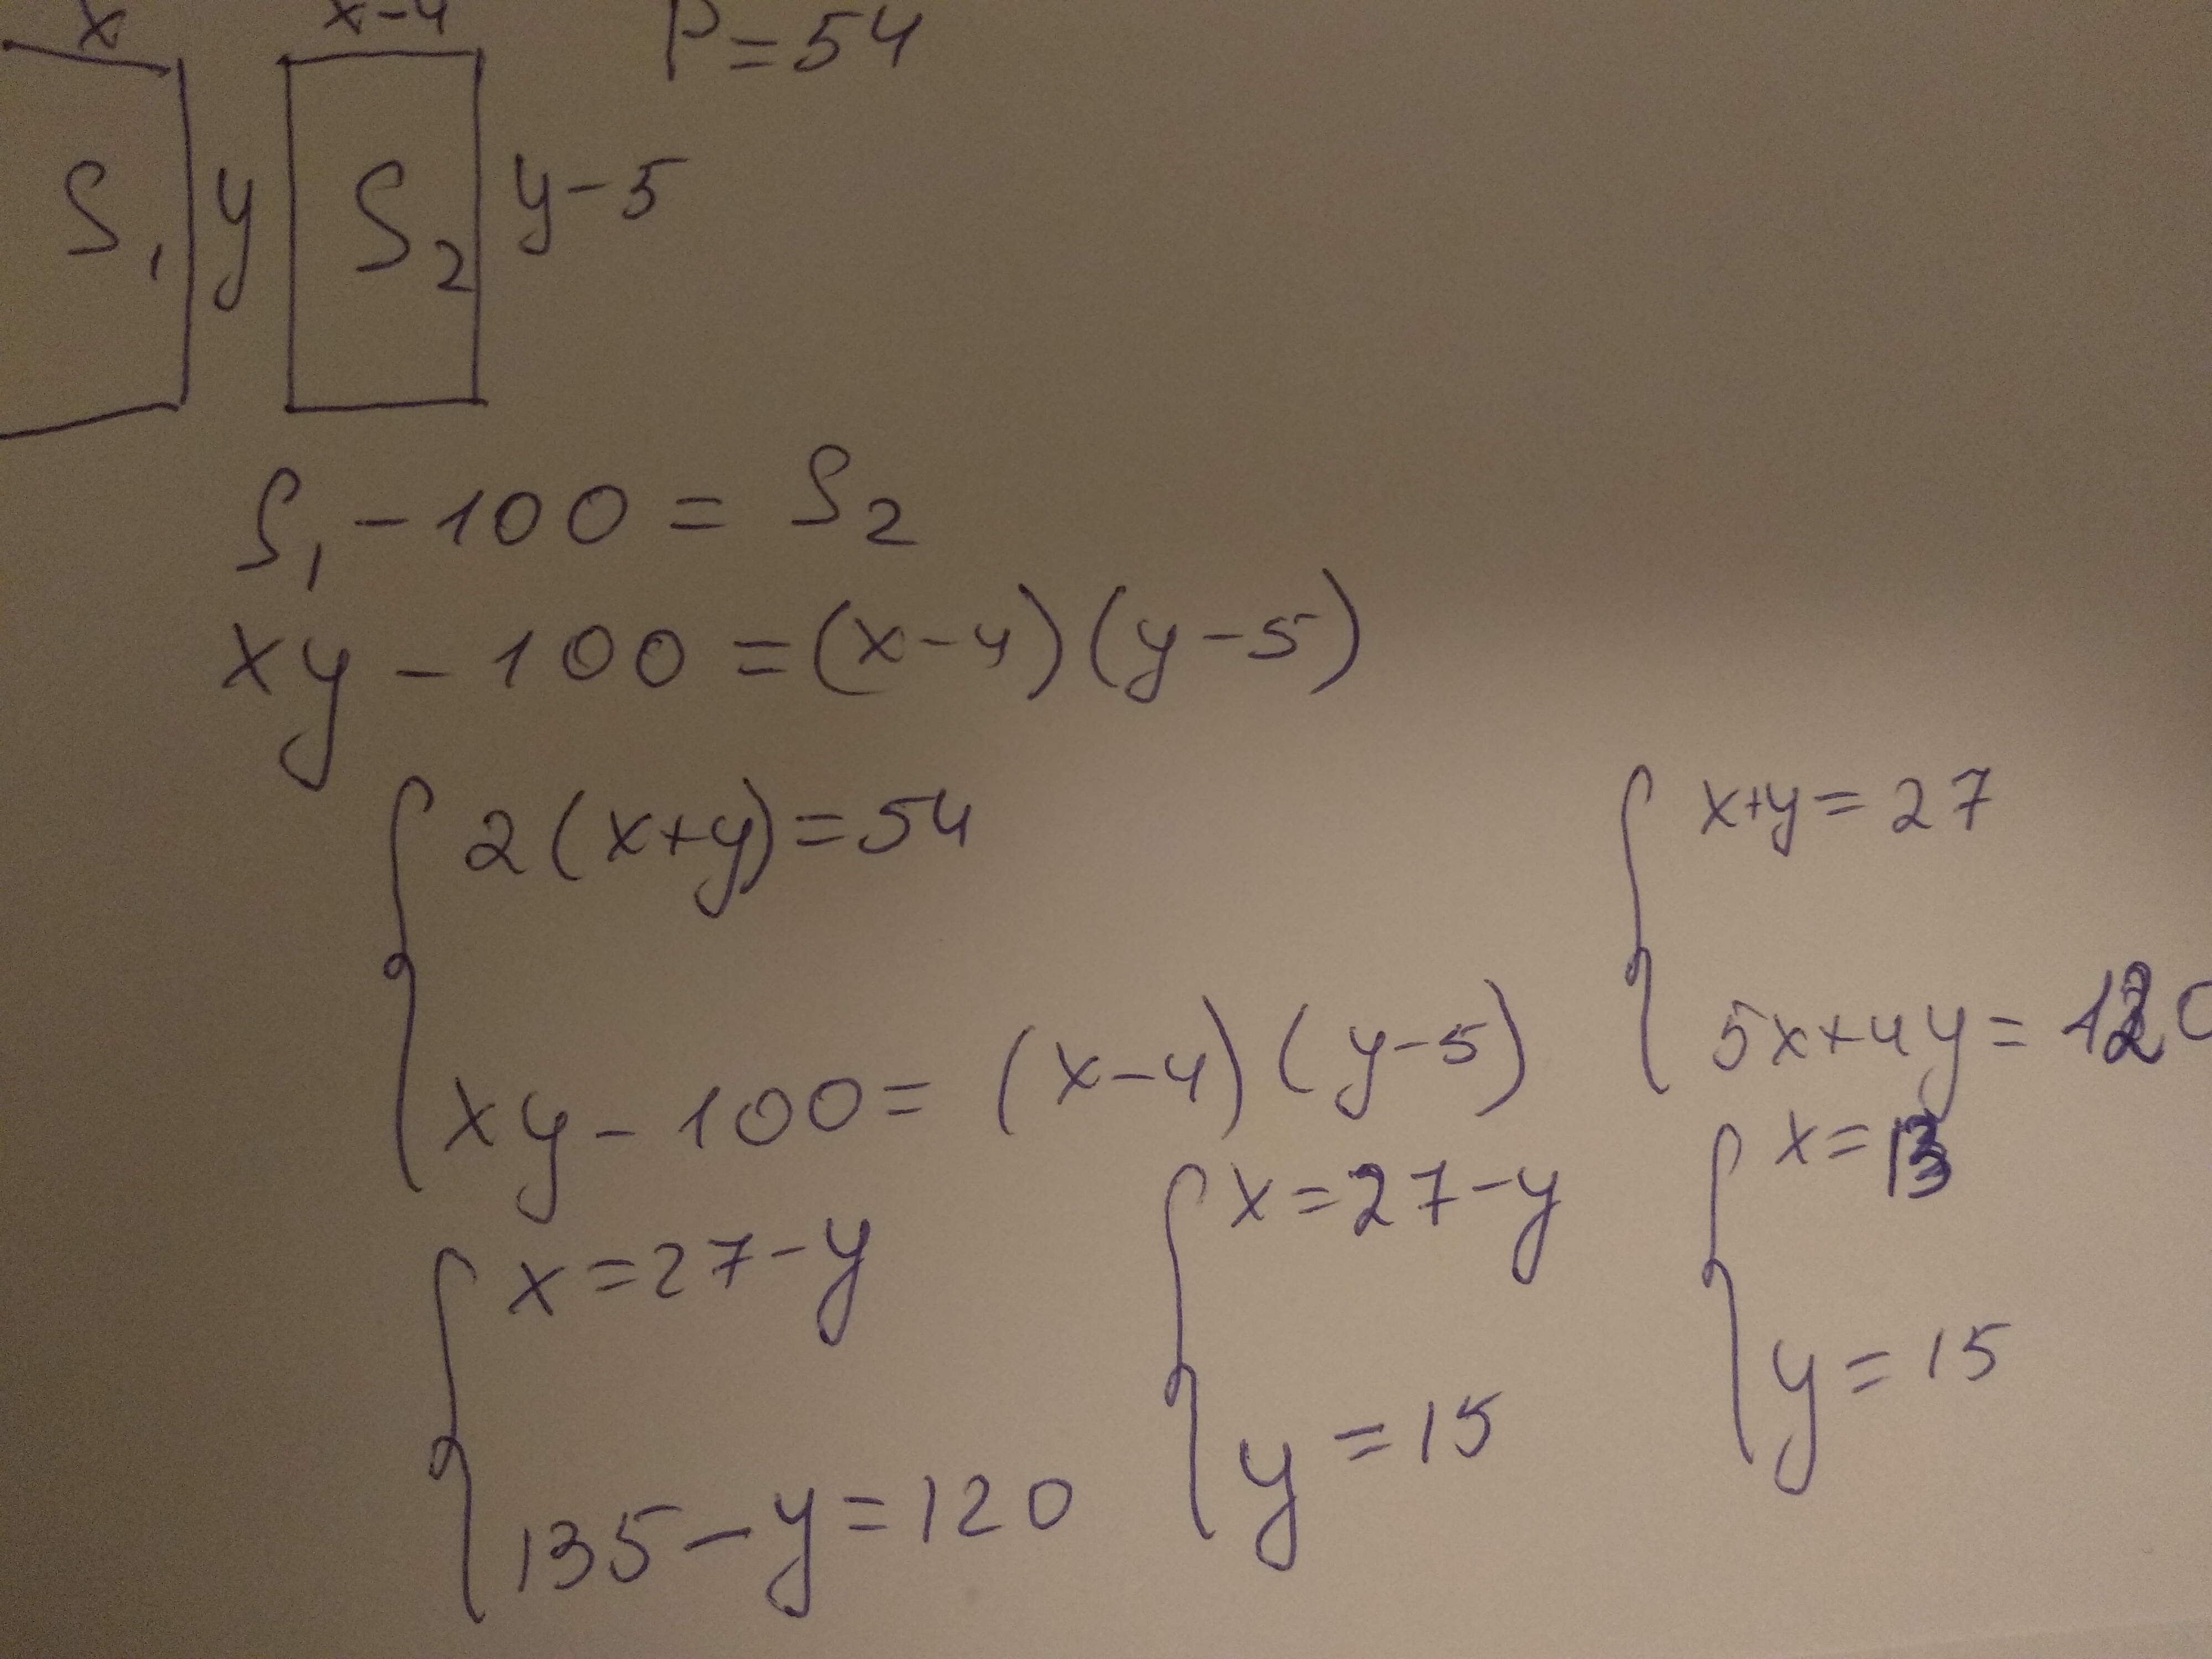 x x-4 P=54
S₁ y S₂ y-5
S₁-100=S₂
xy-100=(x-4)(y-5)
2(x+y)=54
xy-100=(x-4)(y-5)
x+y=27
5x+4y=120
x=27-y
135-y=120
x=27-y
y=15
x=13
y=15